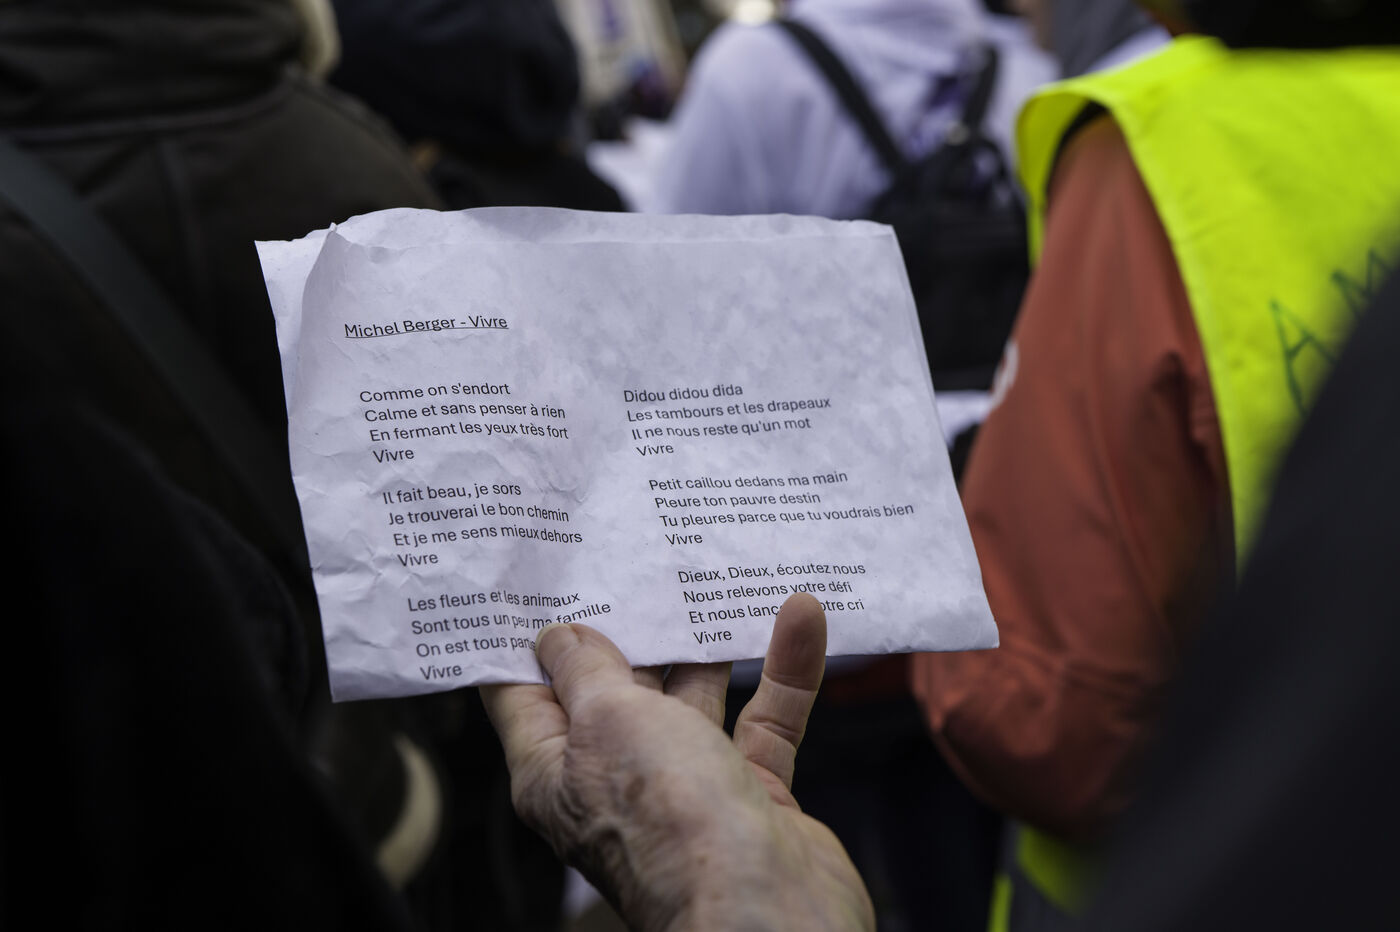 Michel Berger - Vivre
Comme on s'endort
Calme et sans penser à rien
En fermant les yeux très fort
Vivre
Il fait beau, je sors
Je trouverai le bon chemin
Et je me sens mieux dehors
Vivre
Les fleurs et les animaux
Sont tous un peu ma famille
On est tous
Vivre
Didou didou dida
Les tambours et les drapeaux
Il ne nous reste qu'un mot
Vivre
Petit caillou dedans ma main
Pleure ton pauvre destin
Tu pleures parce que tu voudrais bien
Vivre
Dieux, Dieux, écoutez nous
Nous relevons votre défi
Et nous cri
Vivre